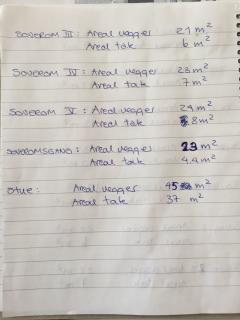 SOVEROM III: Areal vegger 21 m²
Areal tak 6 m²
SOVEROM IV: Areal vegger 23 m²
Areal tak 7 m²
SOVEROM V: Areal vegger 24 m²
Areal tak 8 m²
SOVEROMSGANG: Areal vegger 23 m²
Areal tak 4,4 m²
Stue: Areal vegger 45 m²
Areal tak 37 m²